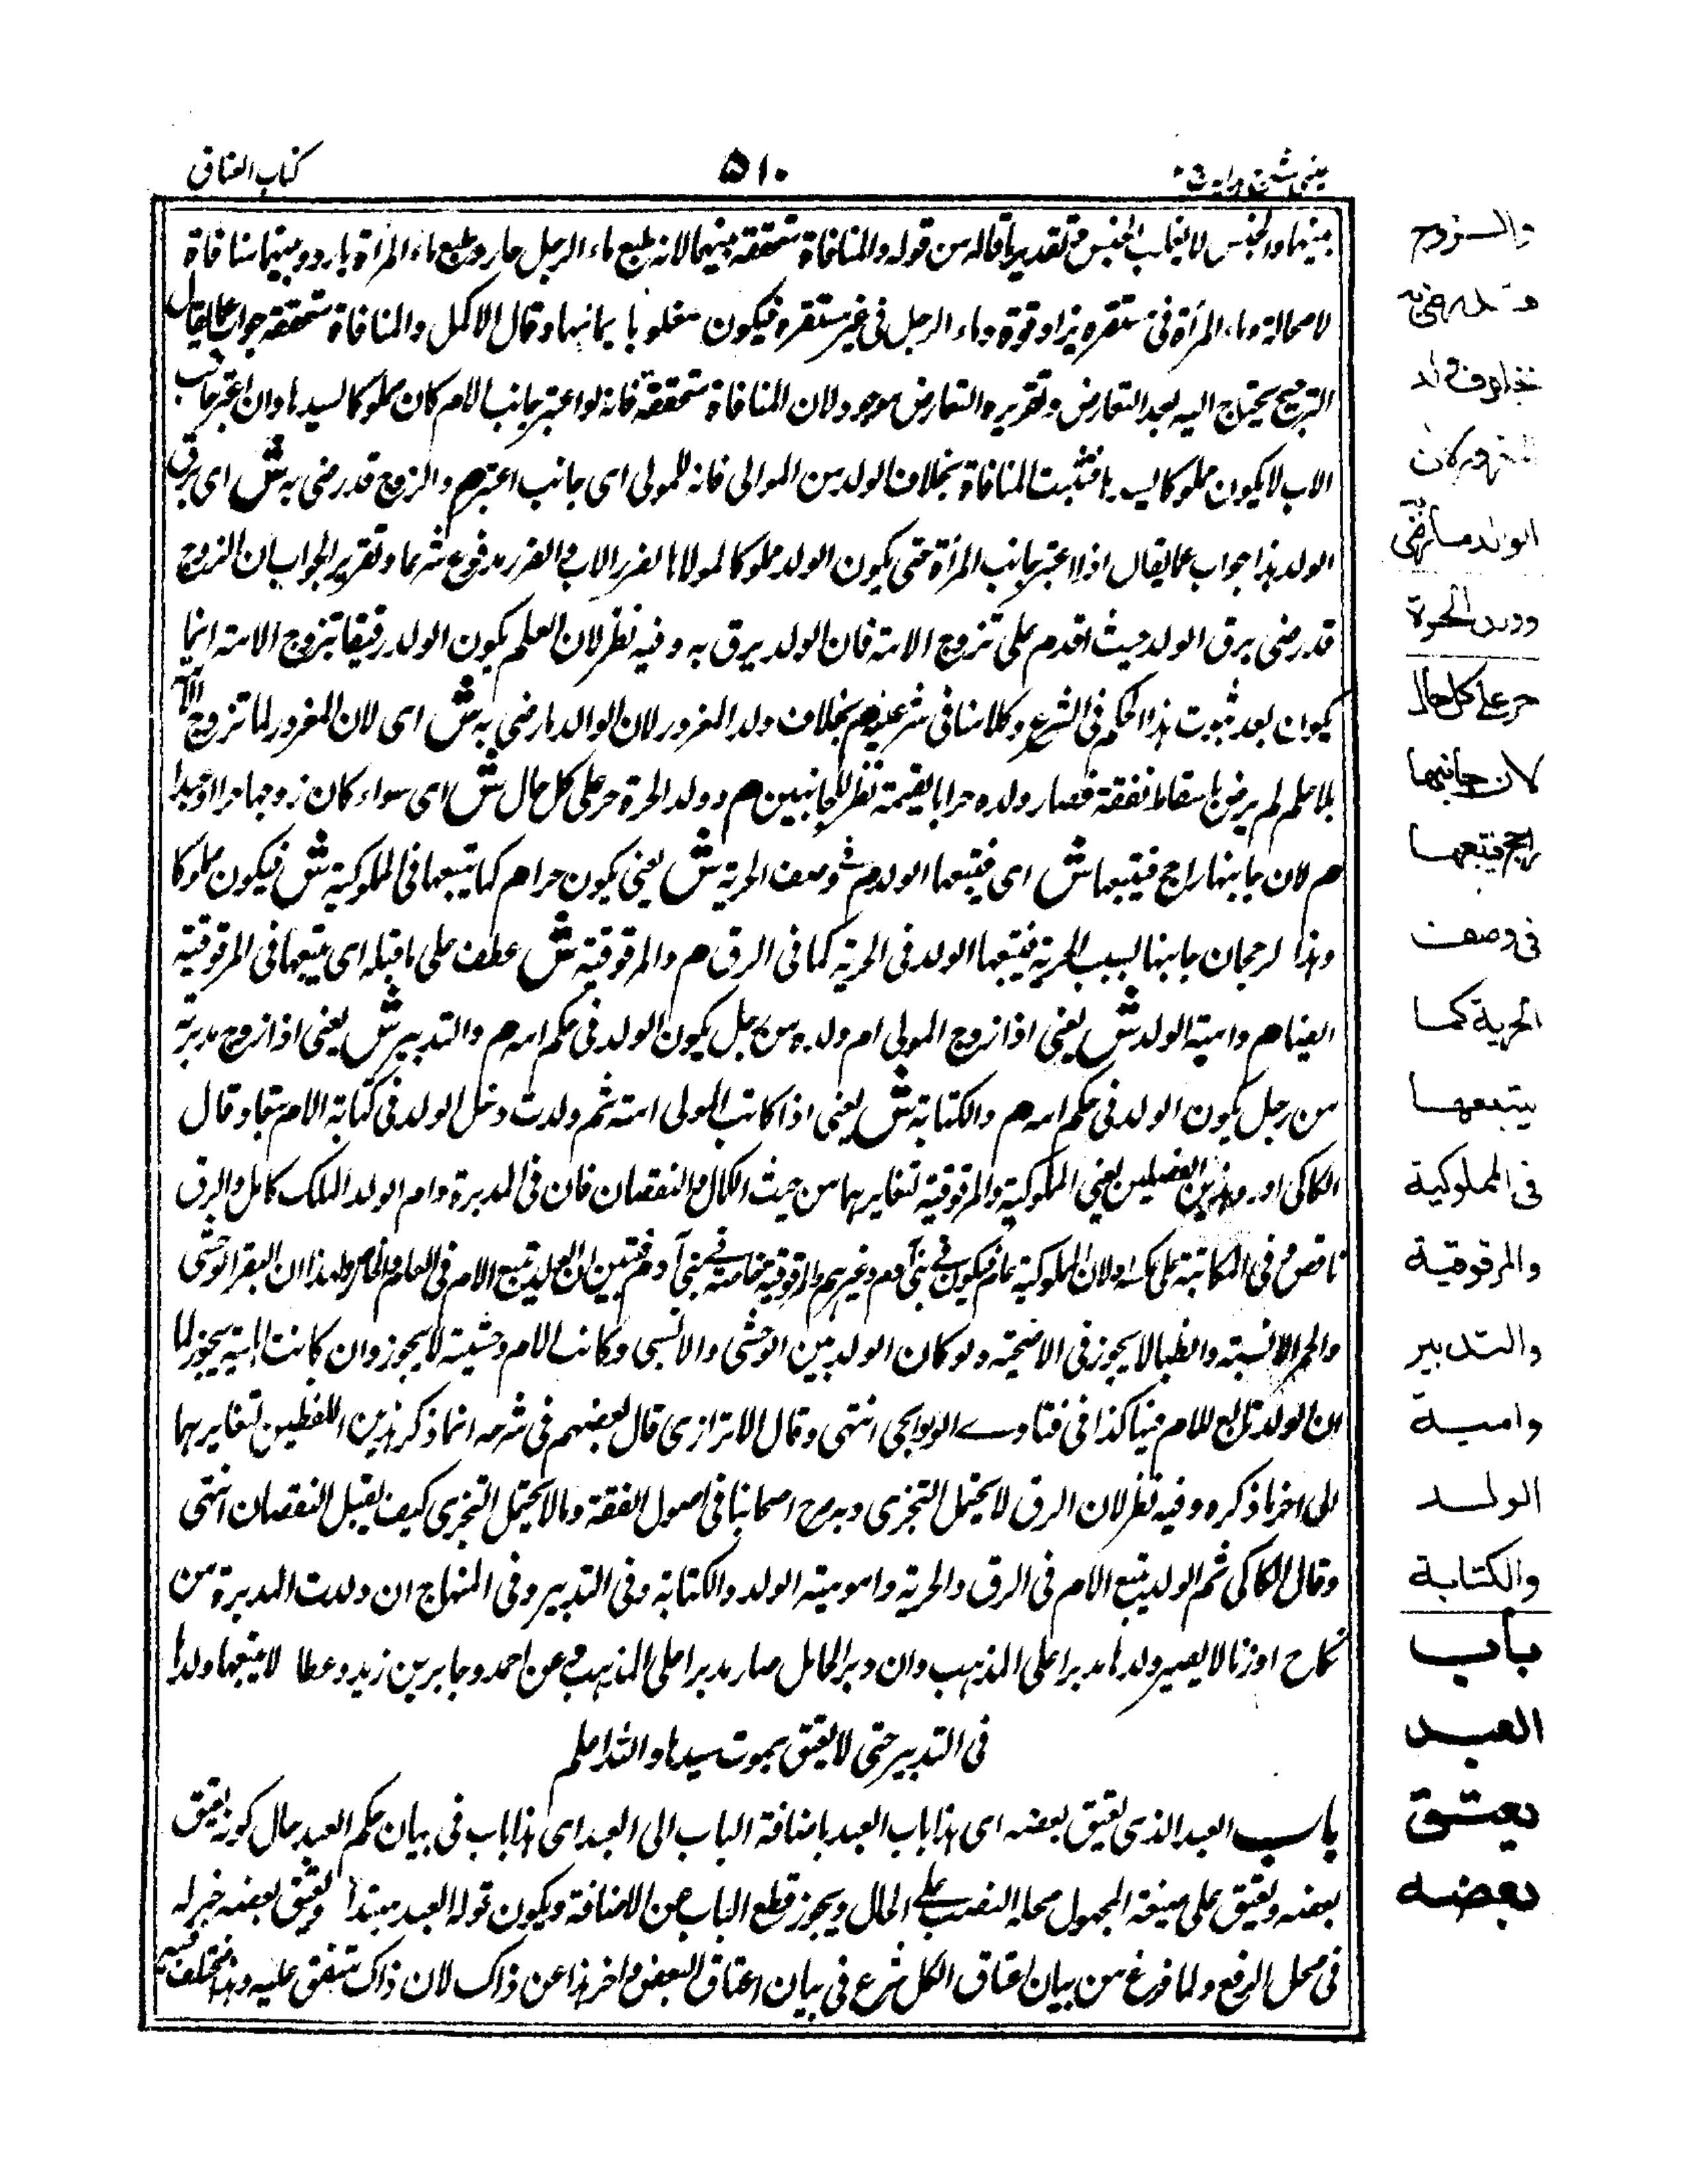 كتاب العتاق
٥١٠
عينى شرح هداية
بينهما والجنس لا يغلب الجنس م تقدير ما قاله من قوله والمنافاة متحققة بينهما لانه طبع ماء الرجل حار وطبع ماء المرأة بارد وبينهما منافاة
لا محالة وماء المرأة فى مستقره يزاد قوة وماء الرجل فى غير مستقره فيكون مغلوبا بمائها وقال الاكمل والمنافاة متحققة جواب عما يقال
الترجيح يحتاج اليه بعد التعارض وتقريره التعارض موجود لان المنافاة متحققة فانه لو اعتبر جانب الام كان مملوكا لسيدها وان اعتبر جانب
الاب لا يكون مملوكا لسيدها فتثبت المنافاة بخلاف الولد من المولى فانه للمولى اى جانب اعتبر م والزوج قد رضى به ش اى برق
الولد هذا جواب عما يقال اذ لا عتبر جانب المرأة حتى يكون الولد مملوكا لمولاها لضرر الاب والضرر مدفوع شرعا وتقرير الجواب ان الزوج
قد رضى برق الولد حيث اقدم على تزوج الامة فان الولد يرق به وفيه نظر لان العلم بكون الولد رقيقا بتزوج الامة انما
يكون بعد ثبوت هذا الحكم فى الشرع وكلامنا فى شرعيته م بخلاف ولد المغرور لان الوالد ما رضى به ش اى لان المغرور لما تزوج الامة
بلا علم لم يرض باسقاط نفقة فصار ولده حرا بالقيمة نظرا للجانبين م وولد الحرة حر على كل حال ش اى سواء كان زوجها حرا او عبدا
م لان جانبها راجح فيتبعها ش اى فيتبعها الولد م فى وصف الحرية ش يعنى يكون حرا م كما يتبعها فى المملوكية ش فيكون مملوكا
وهذا لرجحان جانبها لسبب الحرية فيتبعها الولد فى الحرية كما فى الرق م والمرقوقية ش عطف على ما قبله اى يتبعها فى المرقوقية
ايضا م وامية الولد ش يعنى اذا زوج المولى ام ولده من رجل يكون الولد فى حكم امه م والتدبير ش يعنى اذا زوج مدبرته
من رجل يكون الولد فى حكم امه م والكتابة ش يعنى اذا كاتب المولى امته ثم ولدت دخل الولد فى كتابة الام تبعا وقال
الكاكى اورد هذين الفصلين يعنى المملوكية والمرقوقية لتغايرهما من حيث الكمال والنقصان فان فى المدبرة وام الولد الملك كامل والرق
ناقص وفى المكاتبة على عكسه ولان المملوكية عام فيكون فى بنى آدم وغيرهم والمرقوقية خاصة فى بنى آدم فتبين ان الولد يتبع الام فى العام والخاص ولهذا ان البقر الوحشى
والحمر الانسية والظبا لا يجوز فى الاضحية ولو كان الولد بين الوحشى والانسى وكانت الام وحشية لا يجوز وان كانت اهلية يجوز لما
ان الولد تابع للام فيها كذا فى فتاوى الولوالجى انتهى وقال الاترازى قال بعضهم فى شرحه انما ذكر هذين اللفظين لتغايرهما
الى اخر ما ذكره وفيه نظر لان الرق لا يحتمل التجزى وبه صرح اصحابنا فى اصول الفقه وما لا يحتمل التجزى كيف يقبل النقصان انتهى
وقال الكاكى ثم الولد يتبع الام فى الرق والحرية وامومية الولد والكتابة وفى التدبير وفى المنهاج ان ولدت المدبرة من
نكاح او زنا لا يصير ولدها مدبرا على المذهب وان دبر الحامل صار مدبرا على المذهب وعن احمد وجابر بن زيد وعطا لا يتبعها ولدها
فى التدبير حتى لا يعتق بموت سيدها والله اعلم
باب العبد الذى يعتق بعضه اى هذا باب العبد باضافة الباب الى العبد اى هذا باب فى بيان حكم العبد حال كونه يعتق
بعضه ويعتق على صيغة المجهول محله النصب على الحال ويجوز قطع الباب عن الاضافة ويكون قوله العبد مبتدأ ويعتق بعضه خبر له
فى محل الرفع ولما فرغ من بيان اعتاق الكل شرع فى بيان اعتاق البعض واخر هذا عن ذاك لان ذاك متفق عليه وهذا مختلف فيه
والزوج
قد رضى به
بخلاف ولد
المغرور لان
الوالد ما رضى به
وولد الحرة
حر على كل حال
لان جانبها
راجح فيتبعها
فى وصف
الحرية كما
يتبعها
فى المملوكية
والمرقوقية
والتدبير
وامية
الولد
والكتابة
باب
العبد
يعتق
بعضه